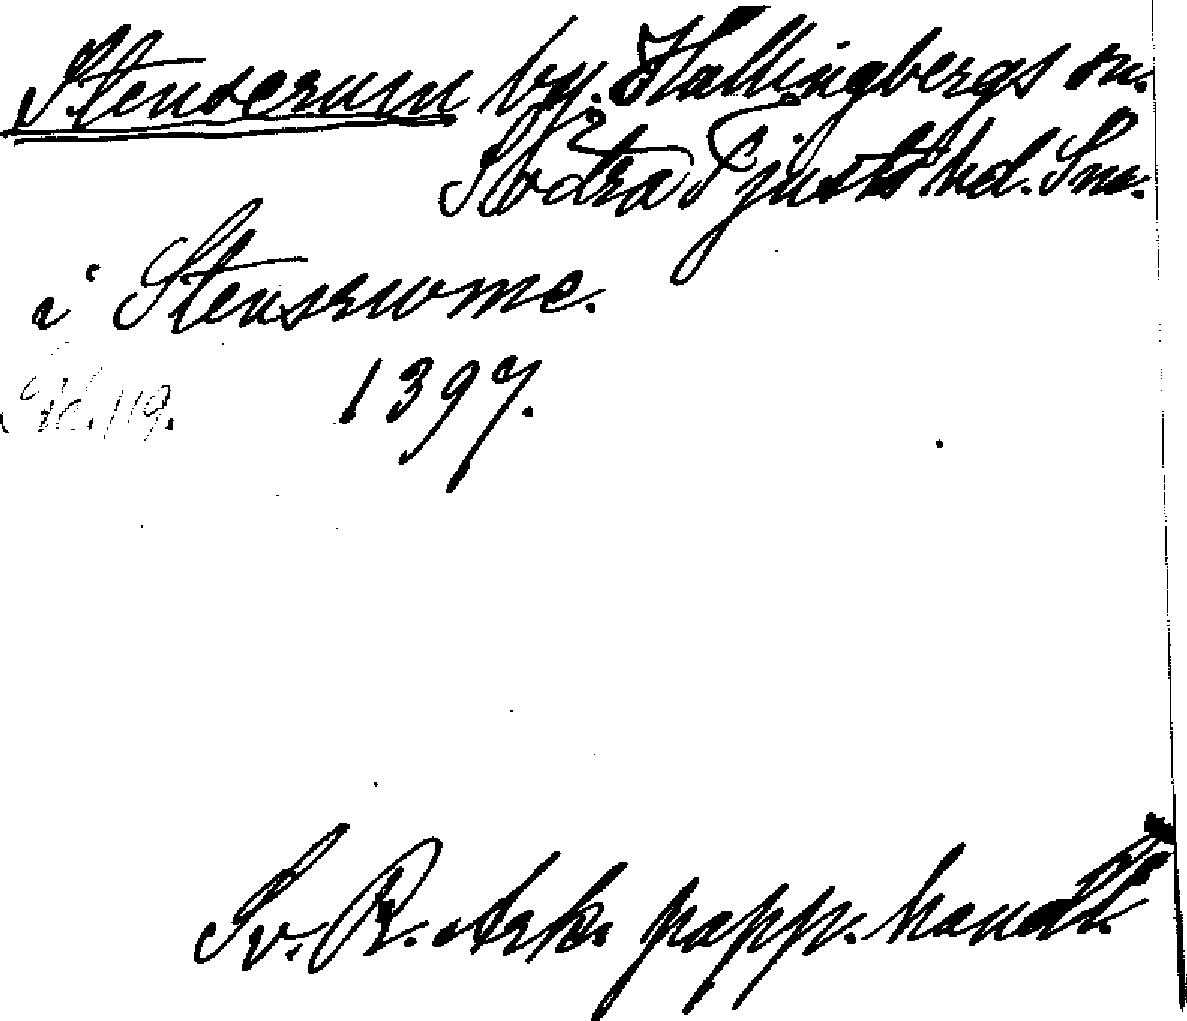 Stenserum by. Hallingbergs sn.
Södra Tjusts hd. Sm.
i Stensrwme.
1397.
Sv. R. Ark. papp. handl.